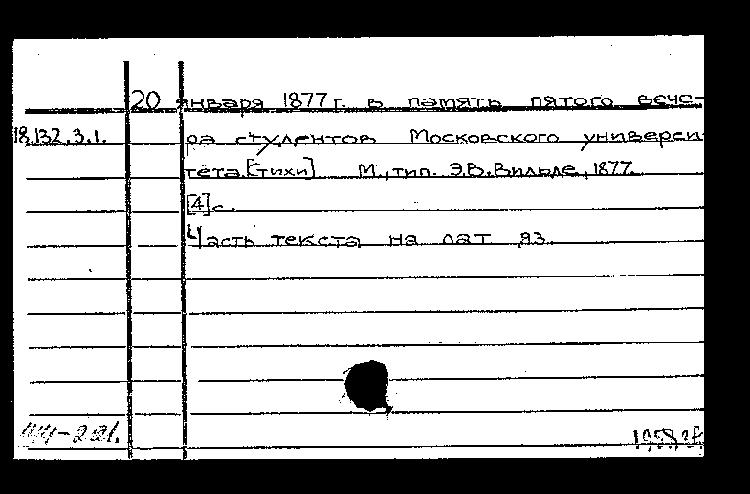 20 января 1877 г. в память пятого вече-
18.132.3.1. ра студентов Московского универси-
тета. [Стихи] М., тип. Э.В. Вильде, 1877.
[4] с.
Часть текста на лат яз.